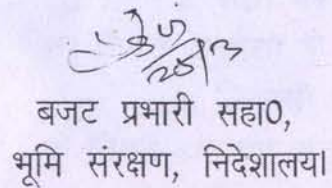 बजट प्रभारी सहा0,
भूमि संरक्षण, निदेशालय।